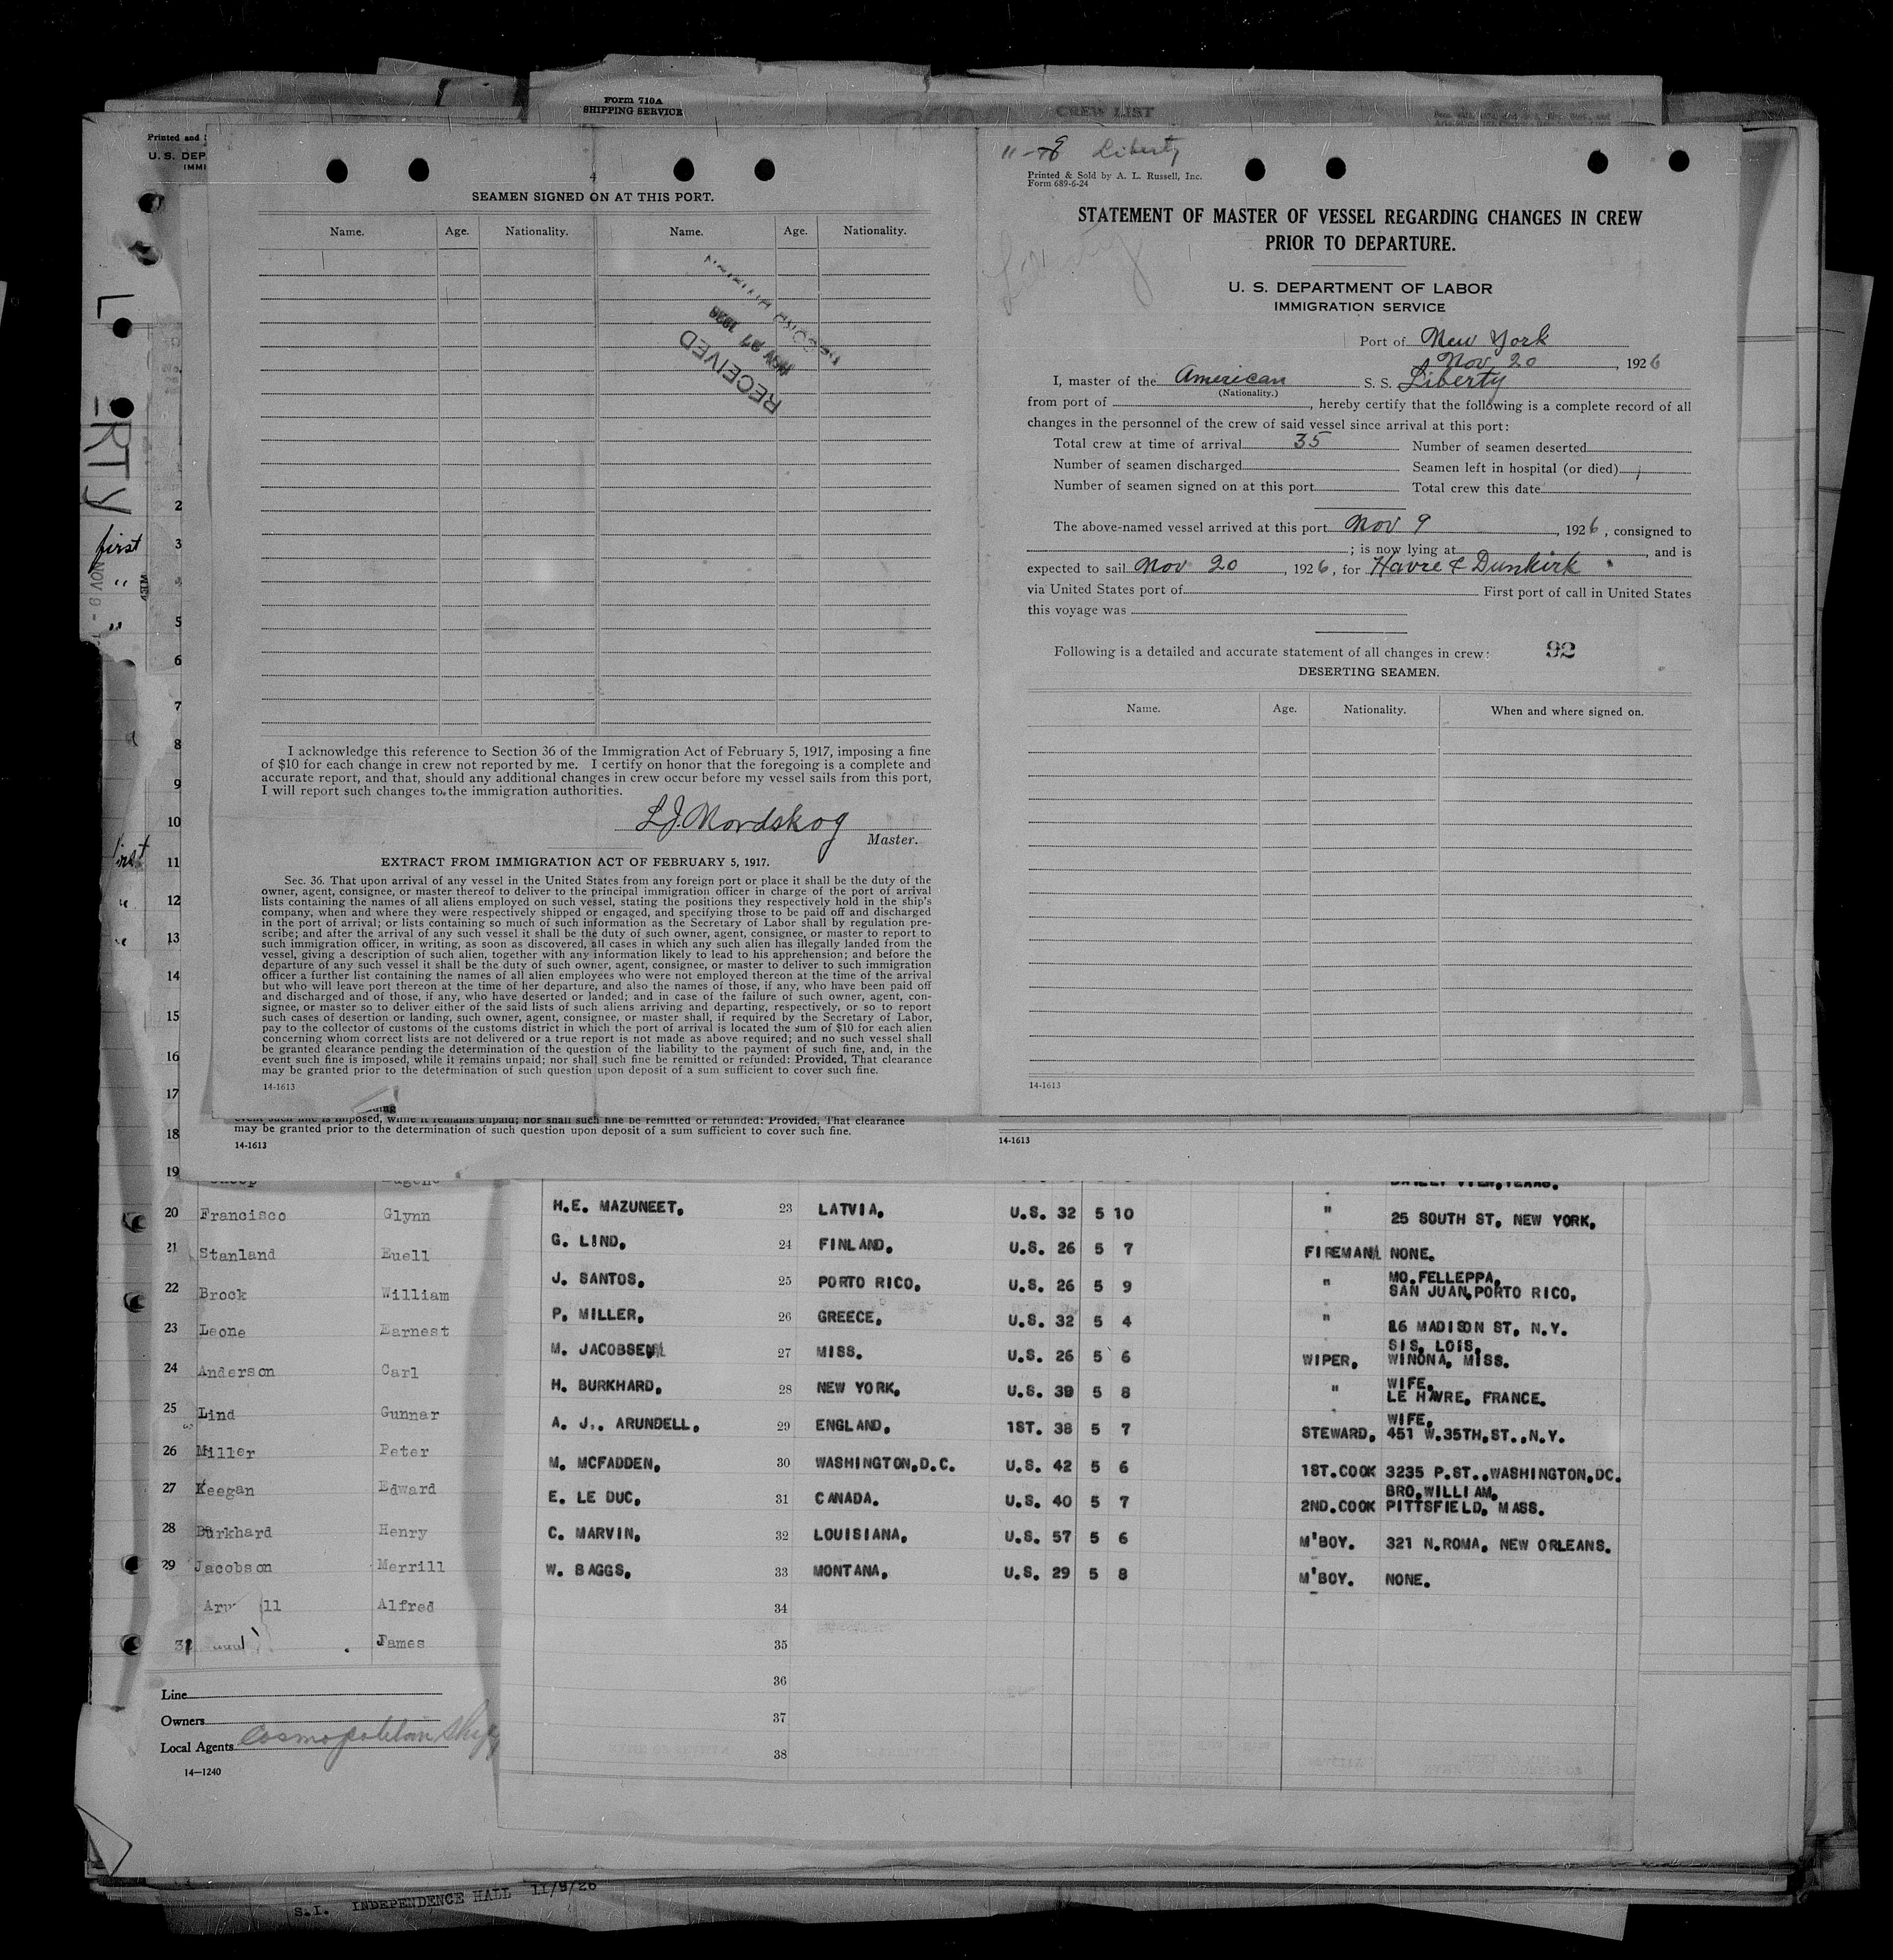 Form 710A
SHIPPING SERVICE
CREW LIST
Printed and
U. S. DEP
IMMI
4
SEAMEN SIGNED ON AT THIS PORT.
Name. Age. Nationality. Name. Age. Nationality.
RECEIVED
NOV 27 1926
I acknowledge this reference to Section 36 of the Immigration Act of February 5, 1917, imposing a fine
of $10 for each change in crew not reported by me. I certify on honor that the foregoing is a complete and
accurate report, and that, should any additional changes in crew occur before my vessel sails from this port,
I will report such changes to the immigration authorities.
L.J. Nordskog
Master.
EXTRACT FROM IMMIGRATION ACT OF FEBRUARY 5, 1917.
Sec. 36. That upon arrival of any vessel in the United States from any foreign port or place it shall be the duty of the
owner, agent, consignee, or master thereof to deliver to the principal immigration officer in charge of the port of arrival
lists containing the names of all aliens employed on such vessel, stating the positions they respectively hold in the ship's
company, when and where they were respectively shipped or engaged, and specifying those to be paid off and discharged
in the port of arrival; or lists containing so much of such information as the Secretary of Labor shall by regulation pre-
scribe; and after the arrival of any such vessel it shall be the duty of such owner, agent, consignee, or master to report to
such immigration officer, in writing, as soon as discovered, all cases in which any such alien has illegally landed from the
vessel, giving a description of such alien, together with any information likely to lead to his apprehension; and before the
departure of any such vessel it shall be the duty of such owner, agent, consignee, or master to deliver to such immigration
officer a further list containing the names of all alien employees who were not employed thereon at the time of the arrival
but who will leave port thereon at the time of her departure, and also the names of those, if any, who have been paid off
and discharged and of those, if any, who have deserted or landed; and in case of the failure of such owner, agent, con-
signee, or master so to deliver either of the said lists of such aliens arriving and departing, respectively, or so to report
such cases of desertion or landing, such owner, agent, consignee, or master shall, if required by the Secretary of Labor,
pay to the collector of customs of the customs district in which the port of arrival is located the sum of $10 for each alien
concerning whom correct lists are not delivered or a true report is not made as above required; and no such vessel shall
be granted clearance pending the determination of the question of the liability to the payment of such fine, and, in the
event such fine is imposed, while it remains unpaid; nor shall such fine be remitted or refunded: Provided, That clearance
may be granted prior to the determination of such question upon deposit of a sum sufficient to cover such fine.
14-1613
11-9 Liberty
Printed & Sold by A. L. Russell, Inc.
Form 689-6-24
STATEMENT OF MASTER OF VESSEL REGARDING CHANGES IN CREW
PRIOR TO DEPARTURE.
U. S. DEPARTMENT OF LABOR
IMMIGRATION SERVICE
Port of New York
Nov 20, 1926
I, master of the American S. S. Liberty
(Nationality.)
from port of , hereby certify that the following is a complete record of all
changes in the personnel of the crew of said vessel since arrival at this port:
Total crew at time of arrival 35 Number of seamen deserted
Number of seamen discharged Seamen left in hospital (or died)
Number of seamen signed on at this port Total crew this date
The above-named vessel arrived at this port Nov 9, 1926, consigned to
; is now lying at , and is
expected to sail Nov 20, 1926, for Havre & Dunkirk
via United States port of First port of call in United States
this voyage was
Following is a detailed and accurate statement of all changes in crew: 92
DESERTING SEAMEN.
Name. Age. Nationality. When and where signed on.
14-1613
L
RTY
first
"
"
NOV 9
2
3
4
5
6
7
8
9
10
11
12
13
14
15
16
17
18
19
event such fine is imposed, while it remains unpaid; nor shall such fine be remitted or refunded: Provided, That clearance
may be granted prior to the determination of such question upon deposit of a sum sufficient to cover such fine.
14-1613
14-1613
20 Francisco Glynn
21 Stanland Euell
22 Brock William
23 Leone Earnest
24 Anderson Carl
25 Lind Gunnar
26 Miller Peter
27 Keegan Edward
28 Burkhard Henry
29 Jacobson Merrill
Alfred
James
Line
Owners
Local Agents Cosmopolitan Ship
14—1240
H.E. MAZUNEET. 23 LATVIA. U.S. 32 5 10 " 25 SOUTH ST, NEW YORK.
G. LIND. 24 FINLAND. U.S. 26 5 7 FIREMAN NONE.
J. SANTOS. 25 PORTO RICO. U.S. 26 5 9 " MO.FELLEPPA,
SAN JUAN,PORTO RICO.
P. MILLER. 26 GREECE. U.S. 32 5 4 " 16 MADISON ST, N.Y.
M. JACOBSEN 27 MISS. U.S. 26 5 6 WIPER. SIS, LOIS,
WINONA, MISS.
H. BURKHARD. 28 NEW YORK. U.S. 39 5 8 " WIFE,
LE HAVRE, FRANCE.
A. J. ARUNDELL. 29 ENGLAND. 1ST. 38 5 7 STEWARD. WIFE,
451 W.35TH.ST.,N.Y.
M. MCFADDEN. 30 WASHINGTON,D.C. U.S. 42 5 6 1ST.COOK 3235 P.ST.,WASHINGTON,DC.
E. LE DUC. 31 CANADA. U.S. 40 5 7 2ND.COOK BRO.WILLIAM,
PITTSFIELD, MASS.
C. MARVIN. 32 LOUISIANA. U.S. 57 5 6 M'BOY. 321 N.ROMA. NEW ORLEANS.
W. BAGGS. 33 MONTANA. U.S. 29 5 8 M'BOY. NONE.
34
35
36
37
38
S.I. INDEPENDENCE HALL 11/9/26